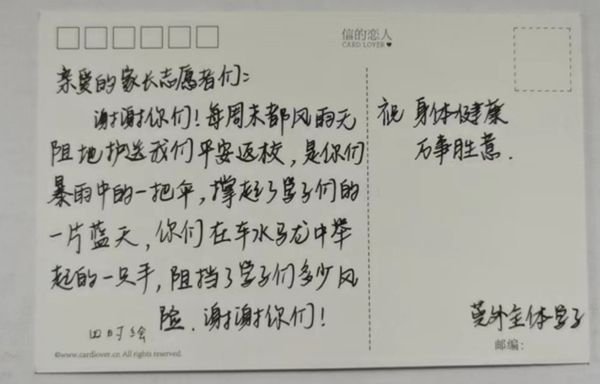 信的恋人
CARD LOVER
亲爱的家长志愿者们:
谢谢你们！每周末都风雨无
阻地护送我们平安返校，是你们
暴雨中的一把伞，撑起了学子们的
一片蓝天，你们在车水马龙中举
起的一只手，阻挡了学子们多少风
险．谢谢你们！
祝 身体健康
万事胜意．
莞外主体学子
四时绘
邮编:
©www.cardlover.cn All rights reserved.